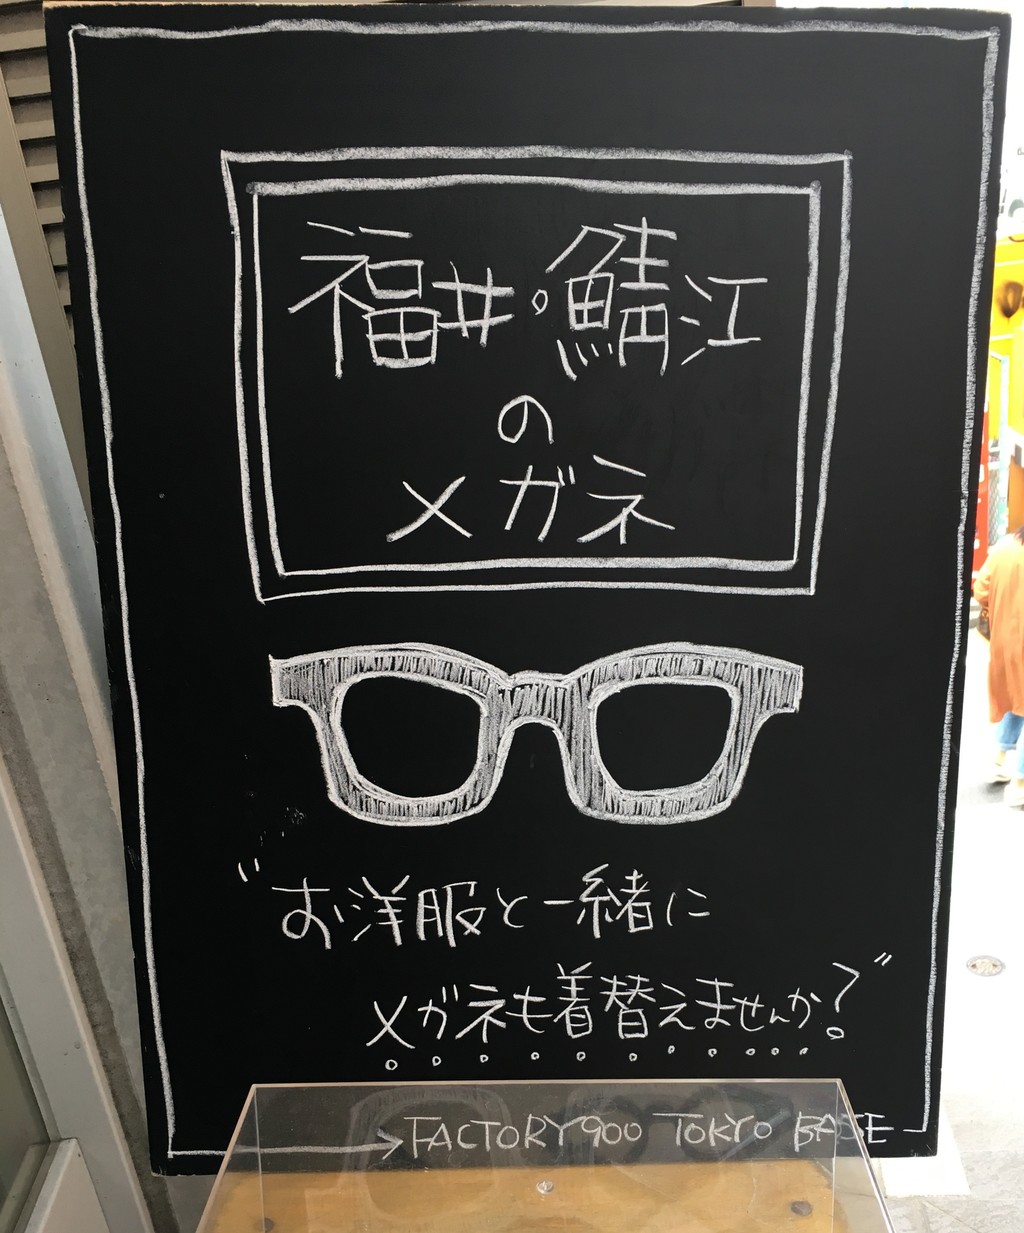 福井・鯖江
の
メガネ
"お洋服と一緒に
メガネも着替えませんか?"
FACTORY900 TOKYO BASE